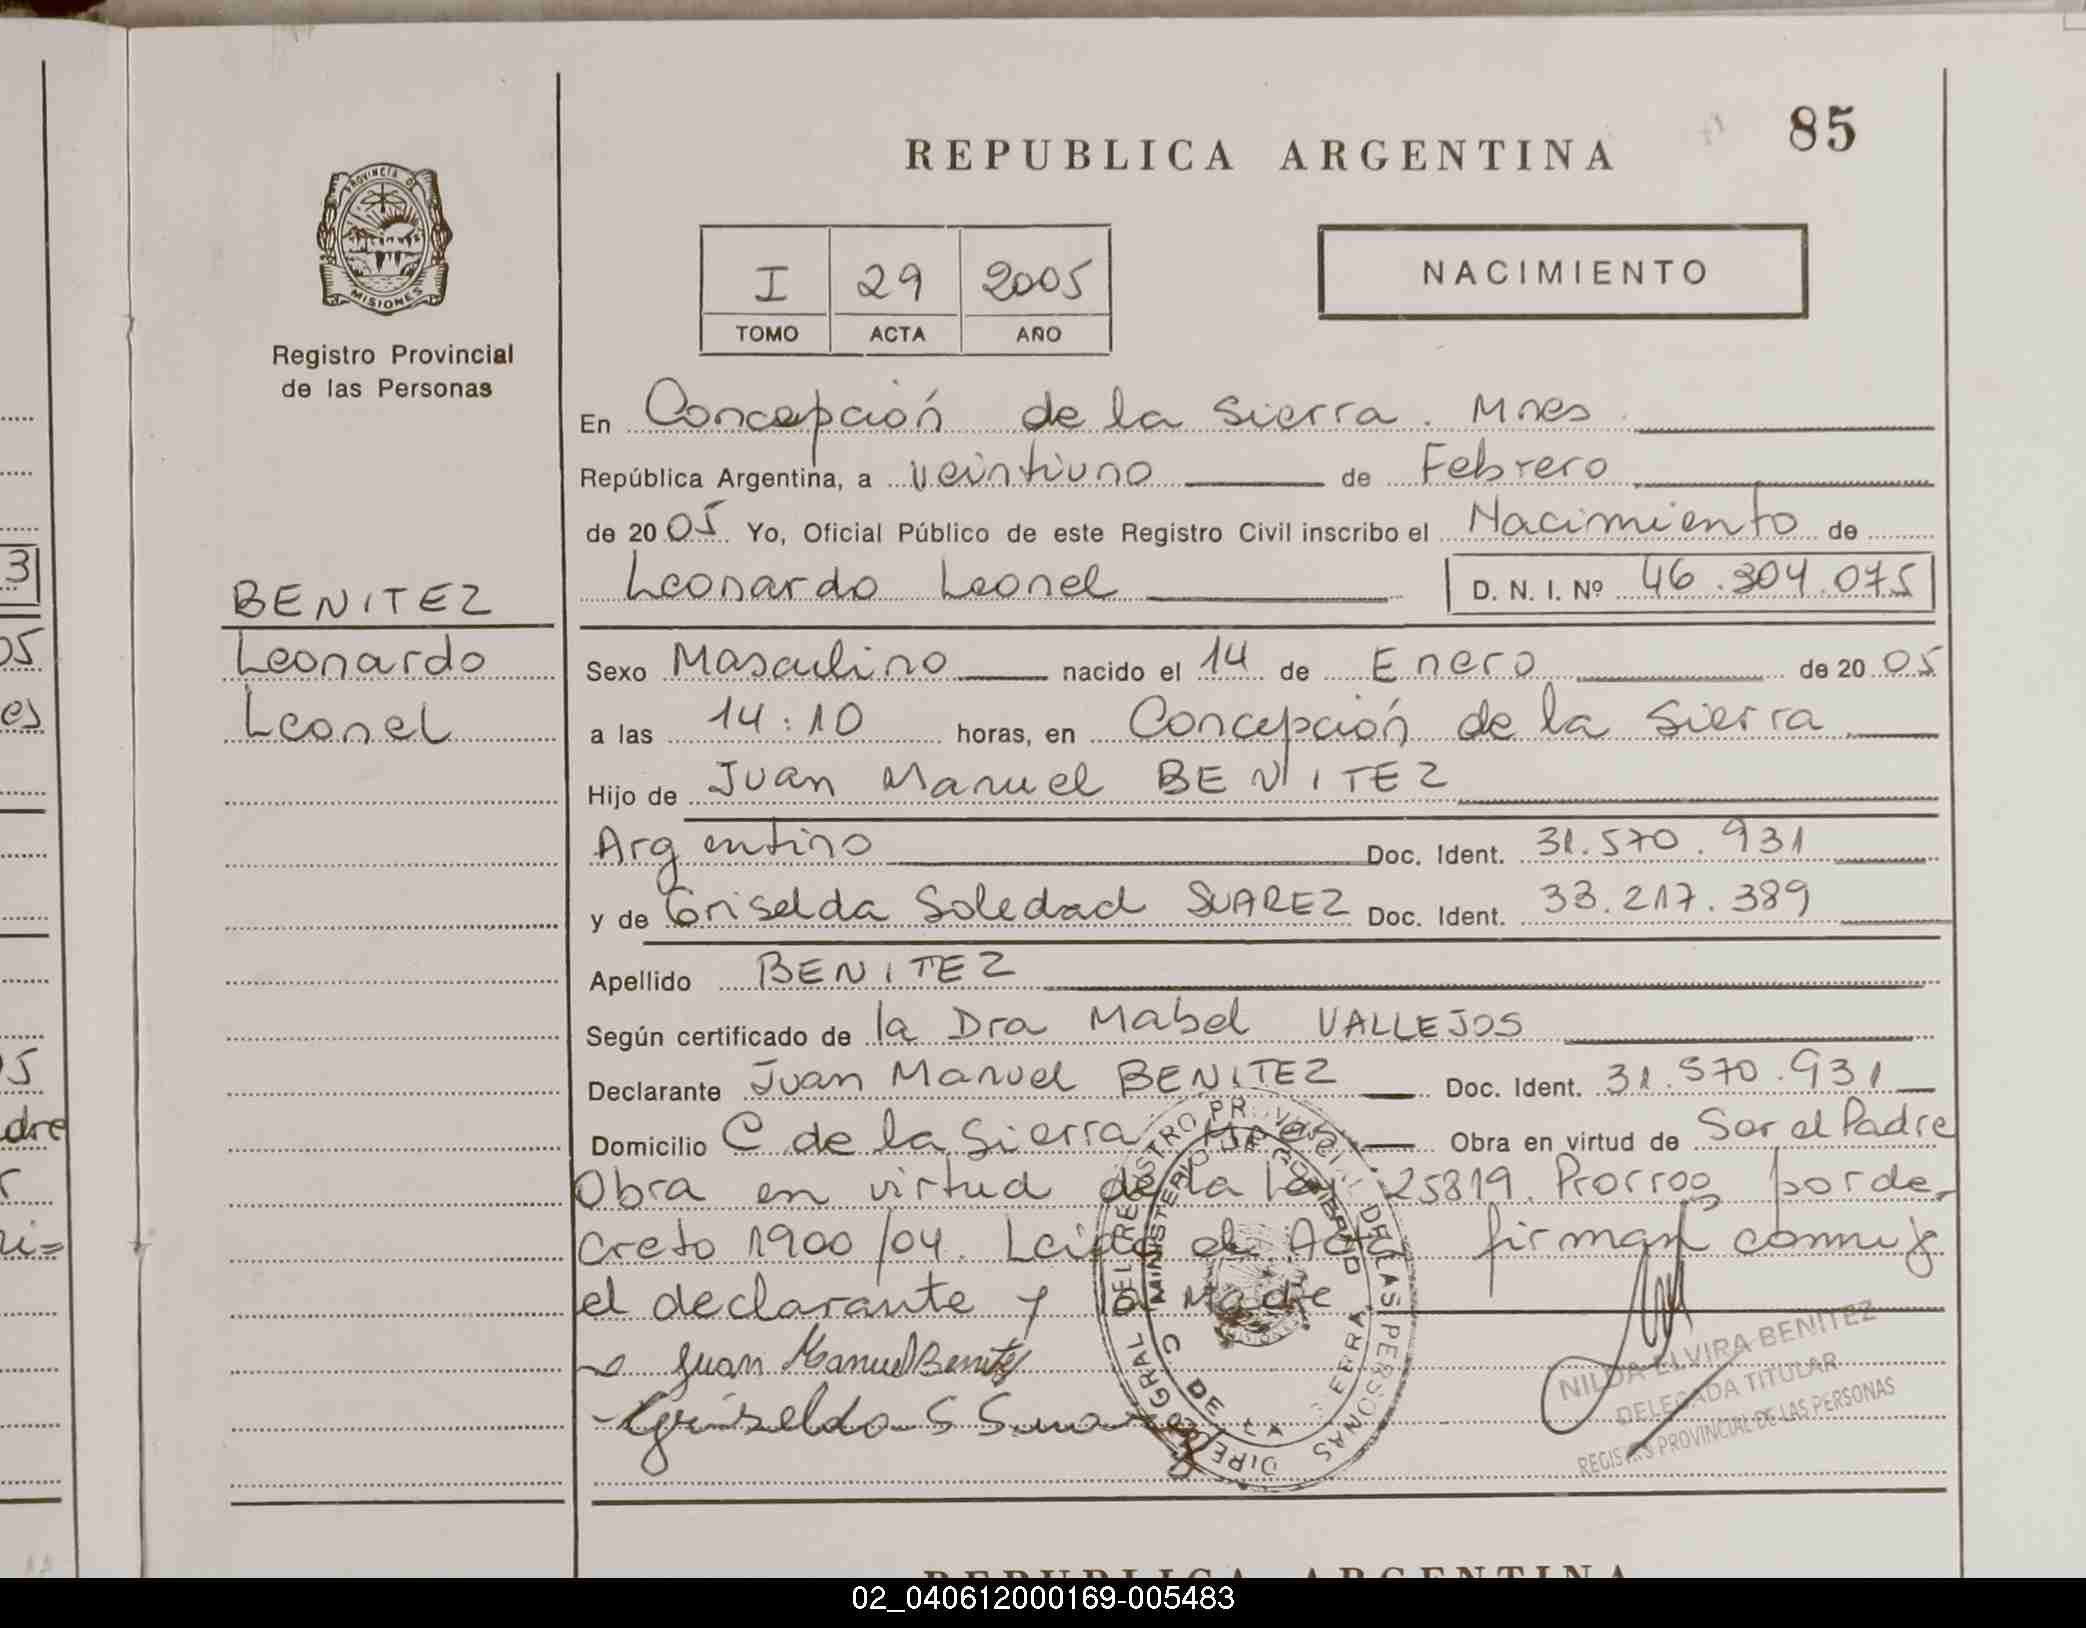 85
REPUBLICA ARGENTINA
PROVINCIA DE
MISIONES
Registro Provincial
de las Personas
I 29 2005
TOMO ACTA AÑO
NACIMIENTO
En Concepción de la Sierra. Mnes
República Argentina, a veintiuno de Febrero
de 2005 Yo, Oficial Público de este Registro Civil inscribo el Nacimiento de
Leonardo Leonel D. N. I. Nº 46.304.075
BENITEZ
Leonardo
Leonel
Sexo Masculino nacido el 14 de Enero de 2005
a las 14:10 horas, en Concepción de la Sierra
Hijo de Juan Manuel BENITEZ
Argentino Doc. Ident. 31.570.931
y de Griselda Soledad SUAREZ Doc. Ident. 33.217.389
Apellido BENITEZ
Según certificado de la Dra Mabel VALLEJOS
Declarante Juan Manuel BENITEZ Doc. Ident. 31.570.931
Domicilio C de la Sierra Mnes Obra en virtud de Ser el Padre
Obra en virtud de la Ley 25819. Prorrog por de-
creto 1900/04. Leida el Acta firman conmig
el declarante y la Madre
Juan Manuel Benitez
Griselda S Suarez
NILDA ELVIRA BENITEZ
DELEGADA TITULAR
REGISTRO PROVINCIAL DE LAS PERSONAS
MINISTERIO DE GOBIERNO
C DE LA SIERRA
3
05
es
5
dre
r
ri=
REPUBLICA ARGENTINA
02_040612000169-005483